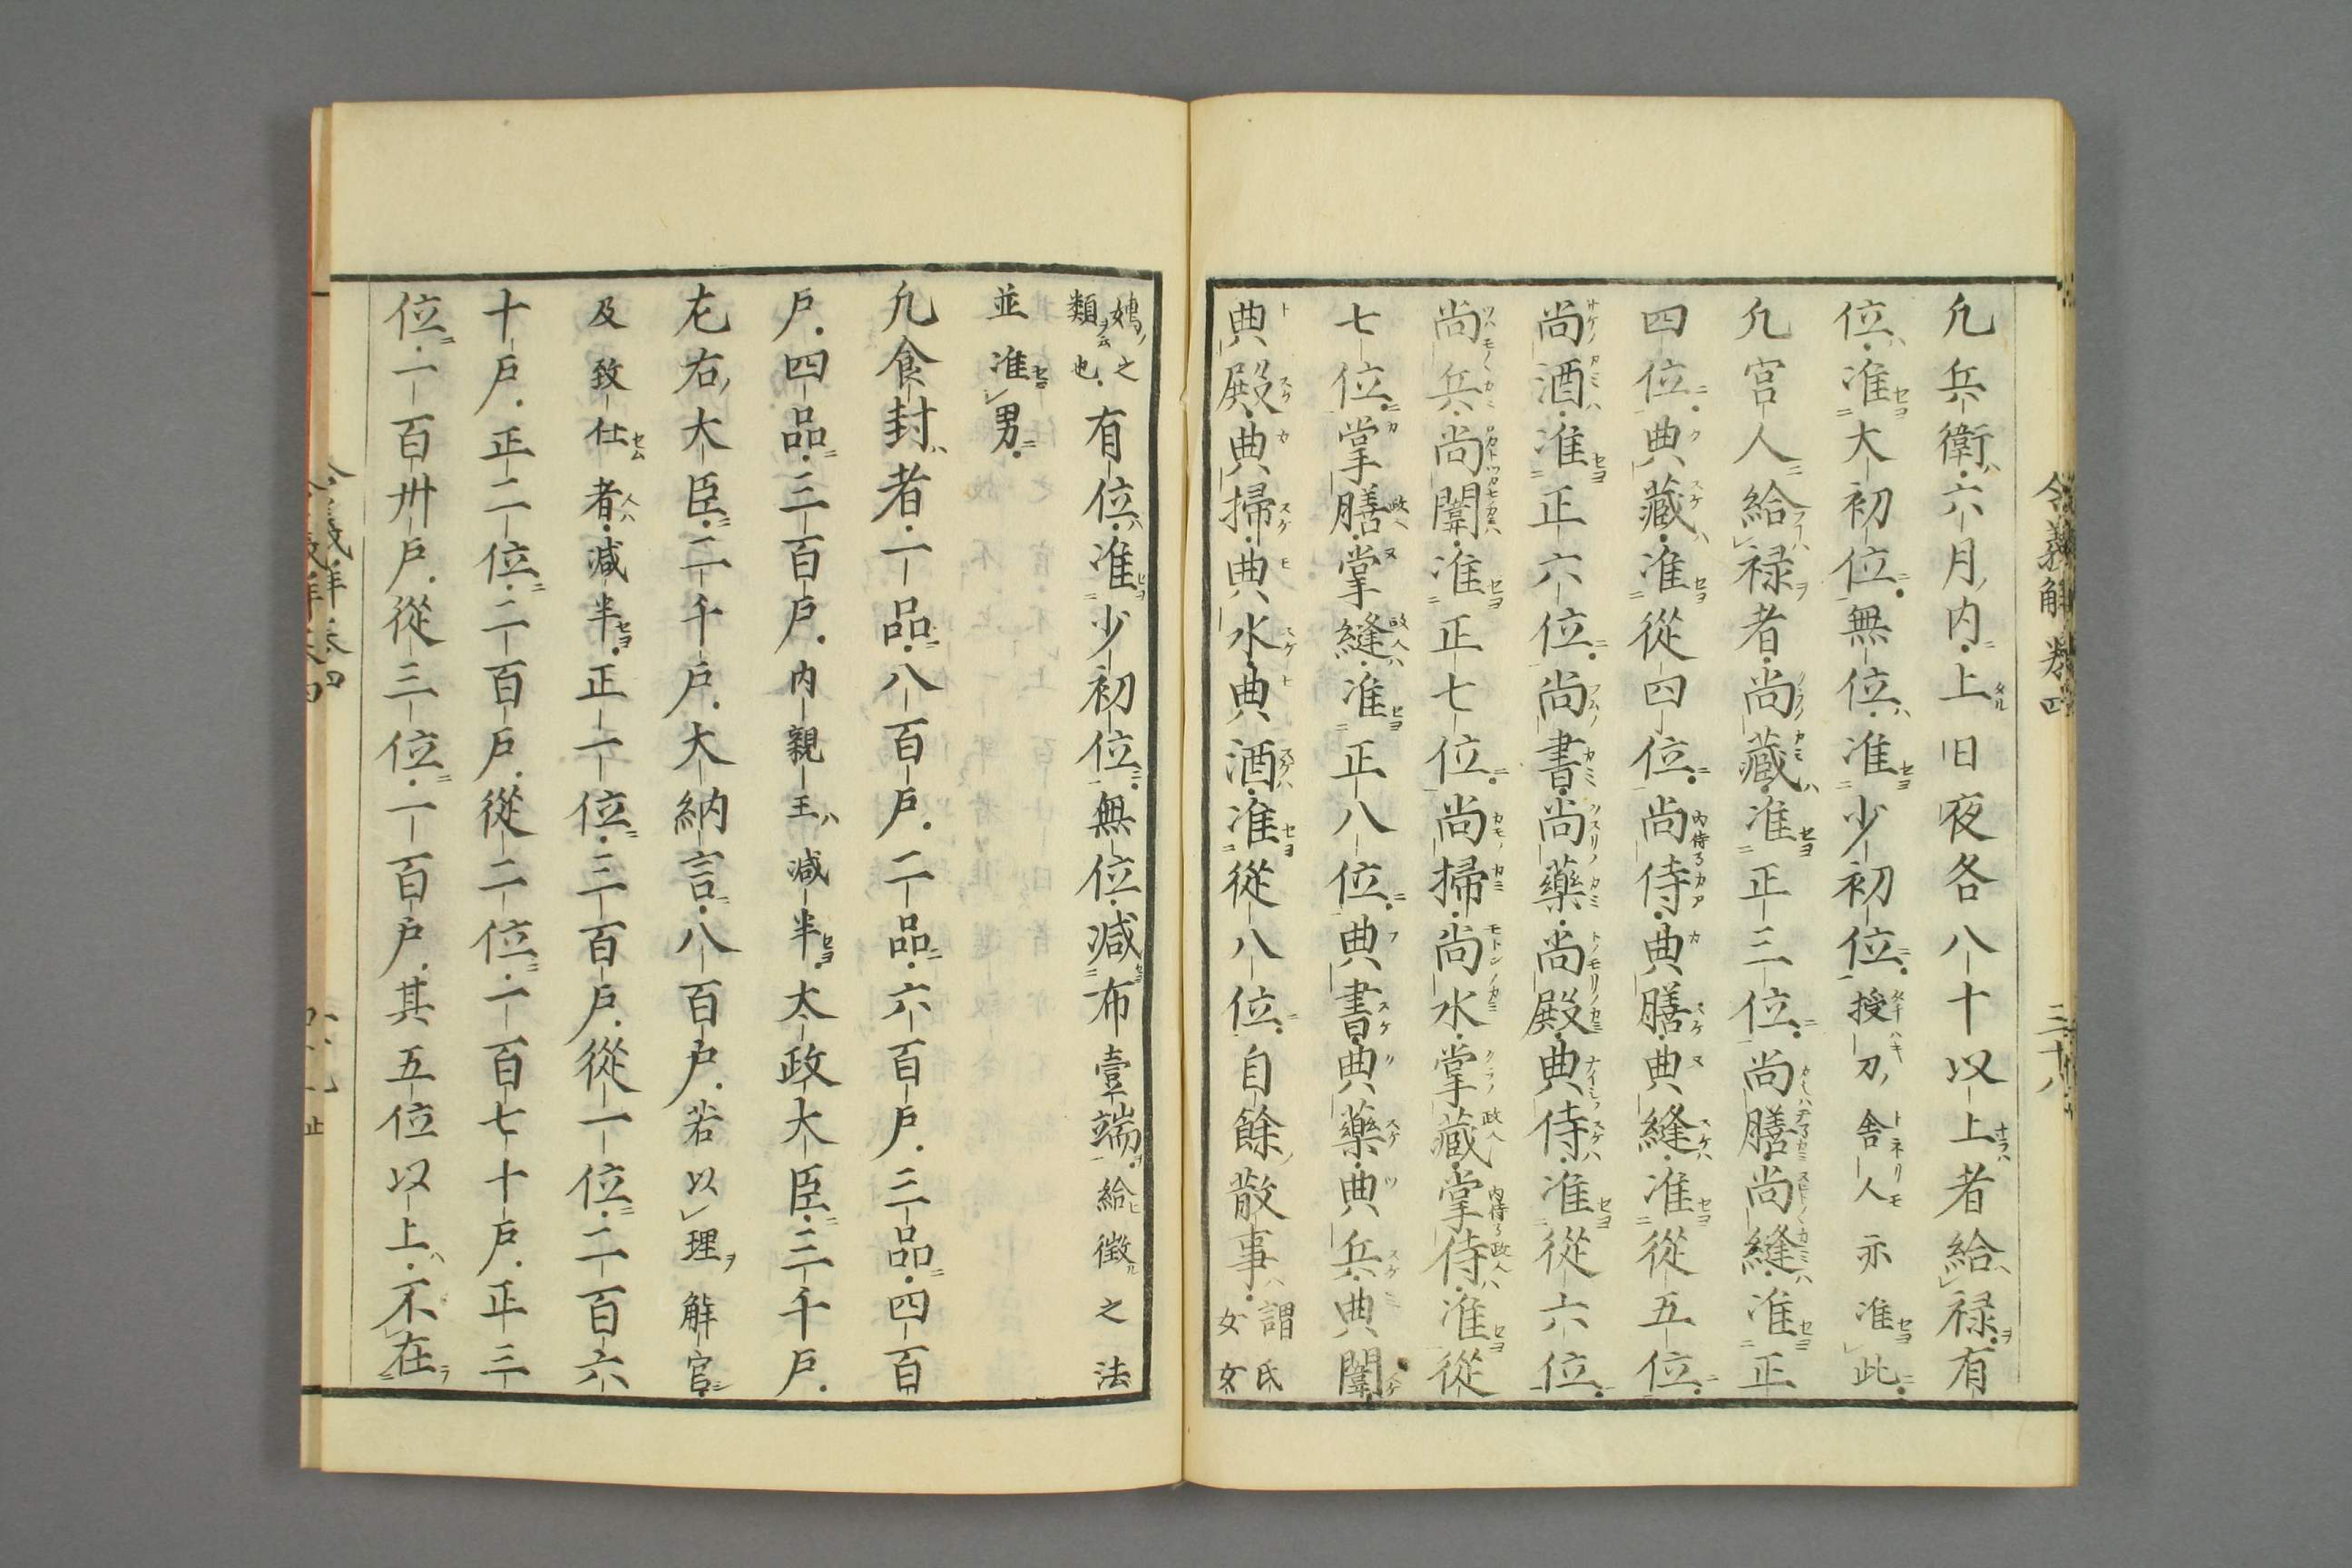 令義解卷四
三十八
凢兵衛六月内上日夜各八十以上者給禄有
位准大初位無位准少初位授刀舎人亦准此
凢宮人給禄者尚藏准正三位尚膳尚縫准正
四位典藏准從四位尚侍典膳典縫准從五位
尚酒准正六位尚書尚藥尚殿典侍准從六位
尚兵尚闈准正七位尚掃尚水掌藏掌侍准從
七位掌膳掌縫准正八位典書典藥典兵典闈
典殿典掃典水典酒准從八位自餘散事謂氏女女
嬬之類也有位准少初位無位减布壹端給徴之法
並准男
凢食封者一品八百戸二品六百戸三品四百
戸四品三百戸内親王减半太政大臣三千戸
左右大臣二千戸大納言八百戸若以理解官
及致仕者减半正一位三百戸從一位二百六
十戸正二位二百戸從二位一百七十戸正三
位一百卅戸從三位一百戸其五位以上不在